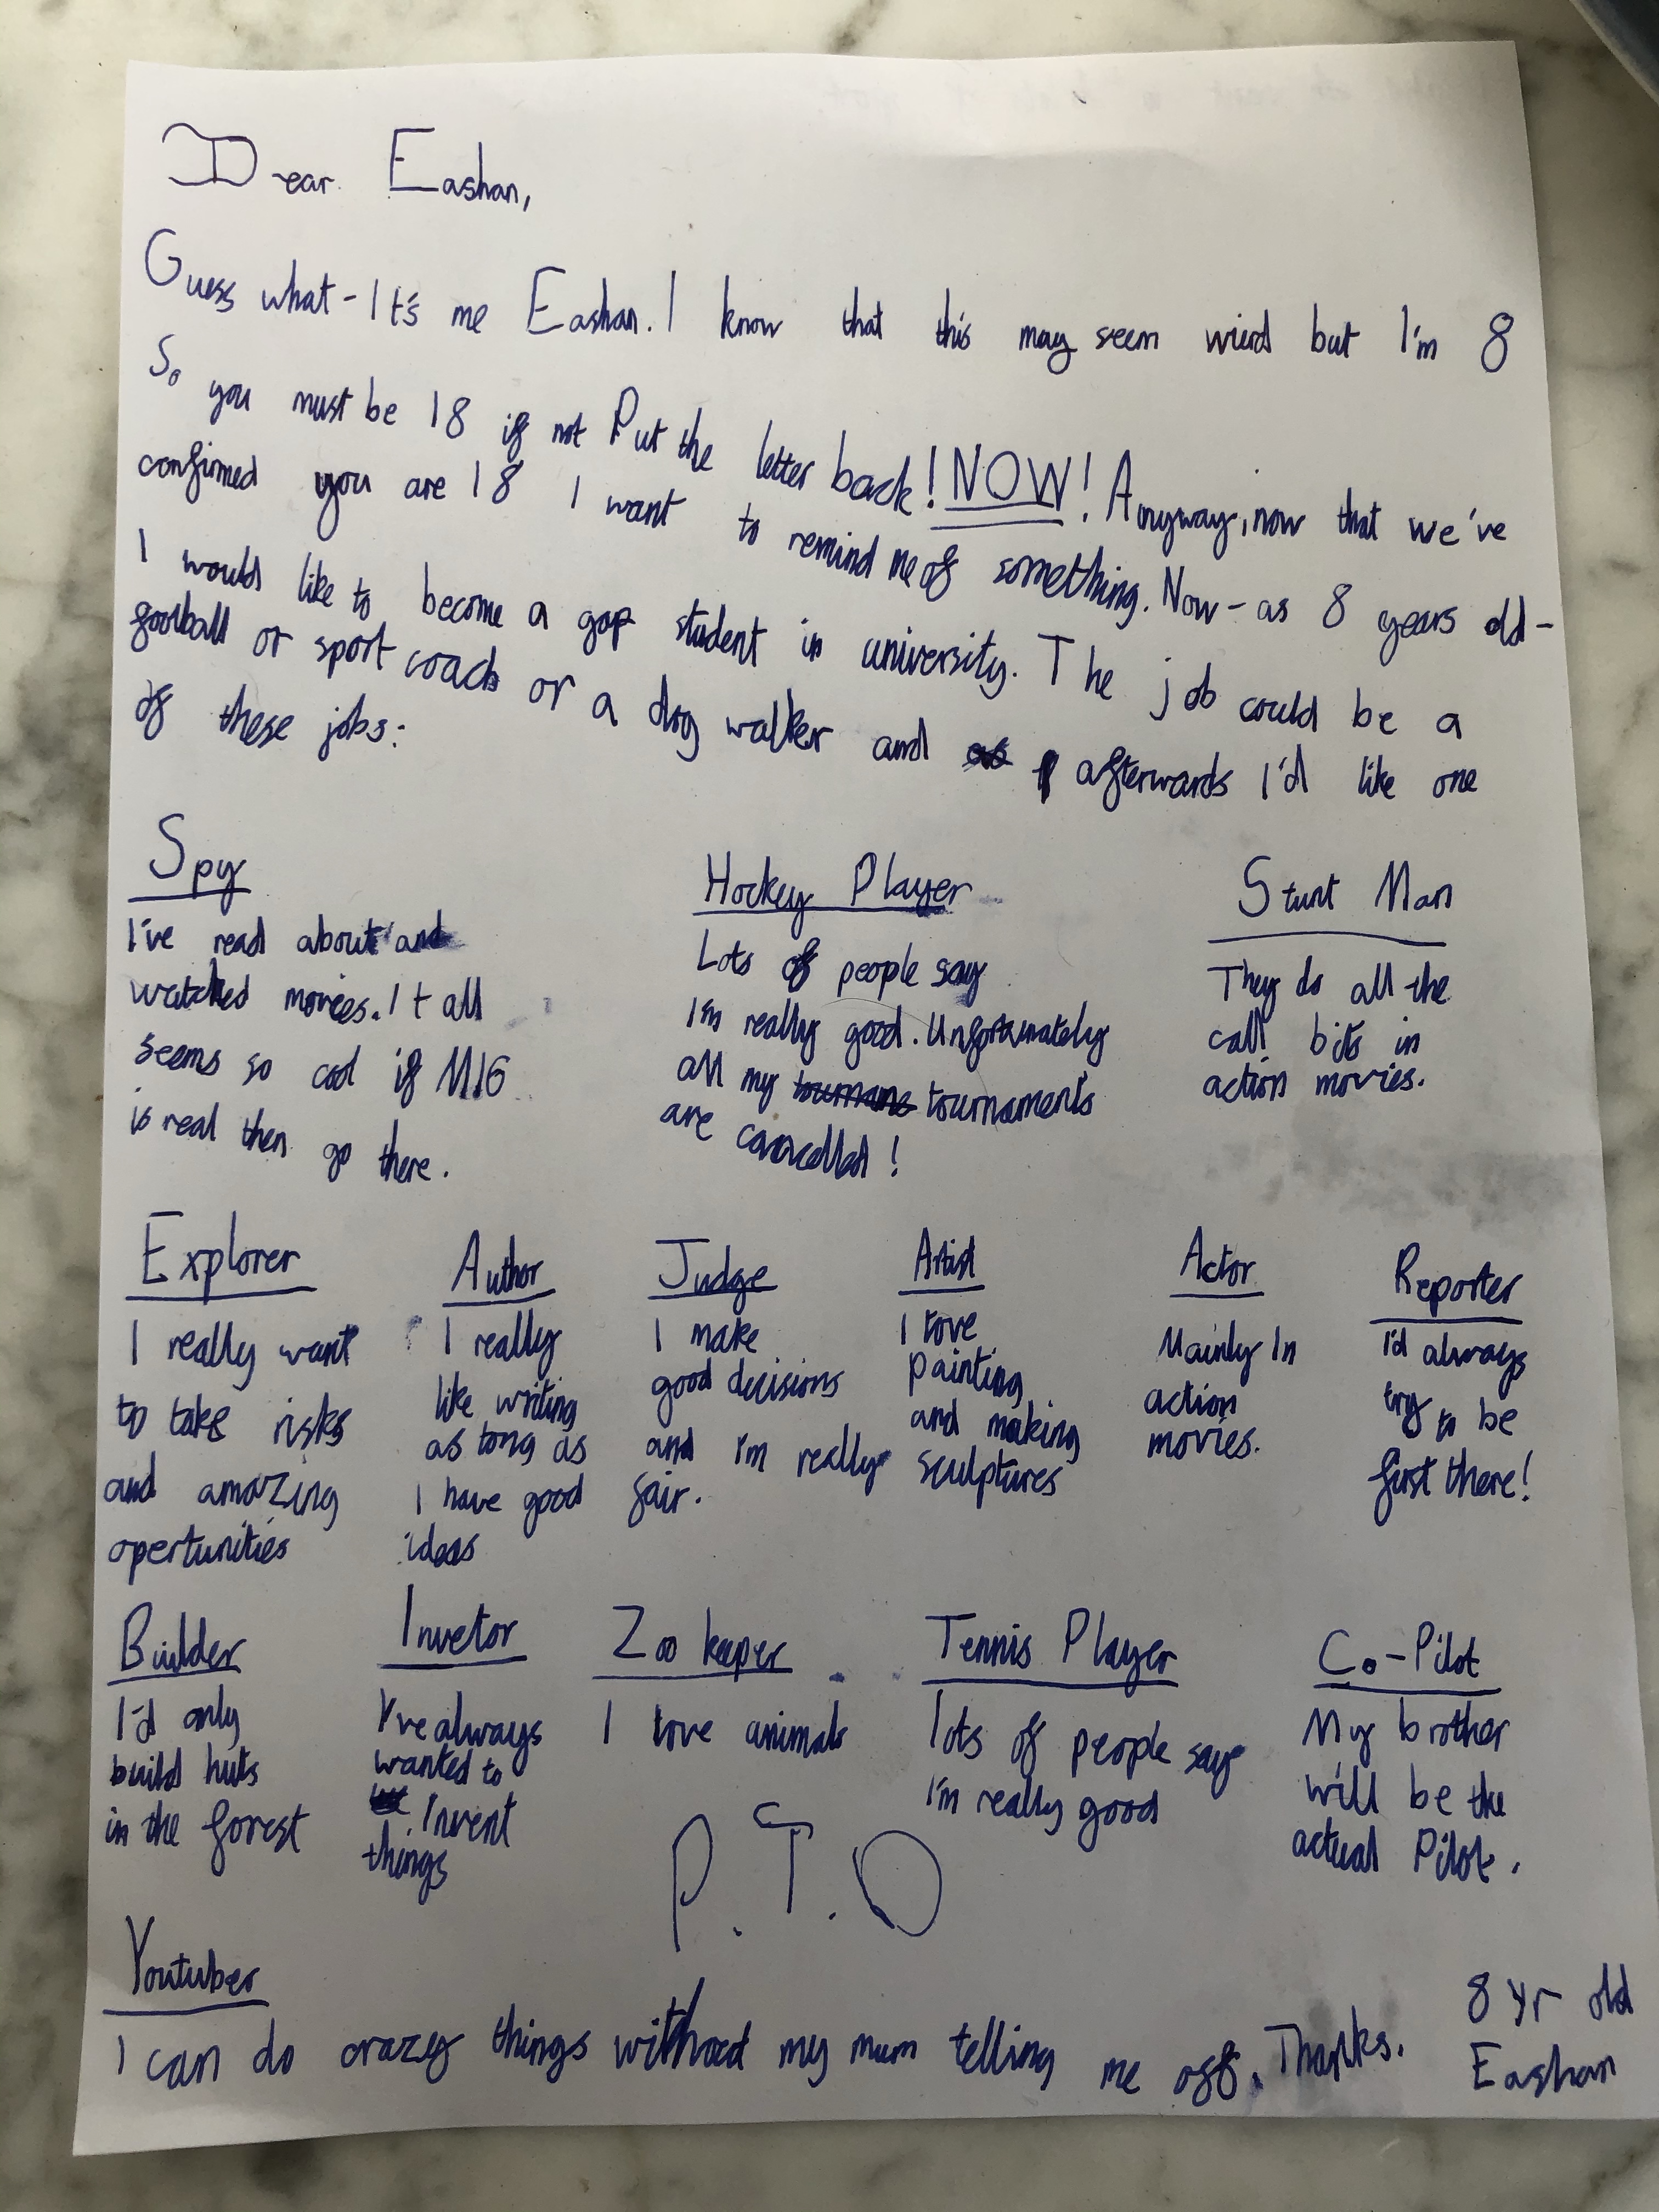 Dear Eashan,
Guess what - It's me Eashan. I know that this may seem wierd but I'm 8
So you must be 18 if not Put the letter back! NOW! Anyway, now that we've
confirmed you are 18 I want to remind me of something. Now - as 8 years old -
I would like to become a gap student in university. The job could be a
football or sport coach or a dog walker and afterwards I'd like one
of these jobs:
Spy
I've read about and
watched movies. It all
seems so cool if M16
is real then go there.
Hockey Player
Lots of people say
I'm really good. Unfortunately
all my tourname tournaments
are cancelled!
Stunt Man
They do all the
call bits in
action movies.
Explorer
I really want
to take risks
and amazing
opertunities
Author
I really
like writing
as long as
I have good
ideas
Judge
I make
good decisions
and I'm really
fair.
Artist
I love
painting
and making
sculptures
Actor
Mainly In
action
movies.
Reporter
I'd always
try to be
first there!
Builder
I'd only
build huts
in the forest
Invetor
I've always
wanted to
Invent
things
Zoo keeper
I love animals
Tennis Player
lots of people say
I'm really good
Co-Pilot
My brother
will be the
actual Pilot.
P.T.O
Youtuber
I can do crazy things without my mum telling me off. Thanks.
8 yr old
Eashan